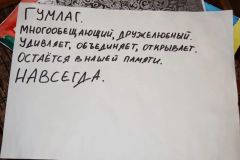 ГУМЛАГ.
МНОГООБЕЩАЮЩИЙ, ДРУЖЕЛЮБНЫЙ.
УДИВЛЯЕТ, ОБЪЕДИНЯЕТ, ОТКРЫВАЕТ.
ОСТАЁТСЯ В НАШЕЙ ПАМЯТИ.
НАВСЕГДА.